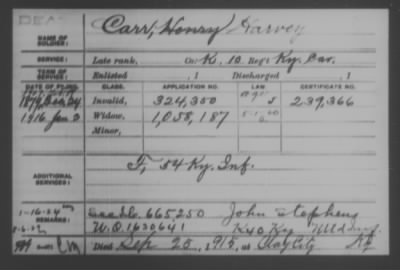 DEAD
Carr, Henry Harvey
NAME OF
SOLDIER:
SERVICE:
Late rank, Co. K, 10 Reg't Ky. Cav.
TERM OF
SERVICE:
Enlisted , 1 Discharged , 1
DATE OF FILING. CLASS. APPLICATION NO. LAW. CERTIFICATE NO.
Invalid, 324,350 239,366
1916 Jan 3 Widow, 1,058,187
Minor,
ADDITIONAL
SERVICES:
F, 54 Ky. Inf.
1-16-24 665,250 John Stephens
REMARKS:
W.O. 1630641 K 40 Ky
Died Sep 25, 1915, at Clay City Ky